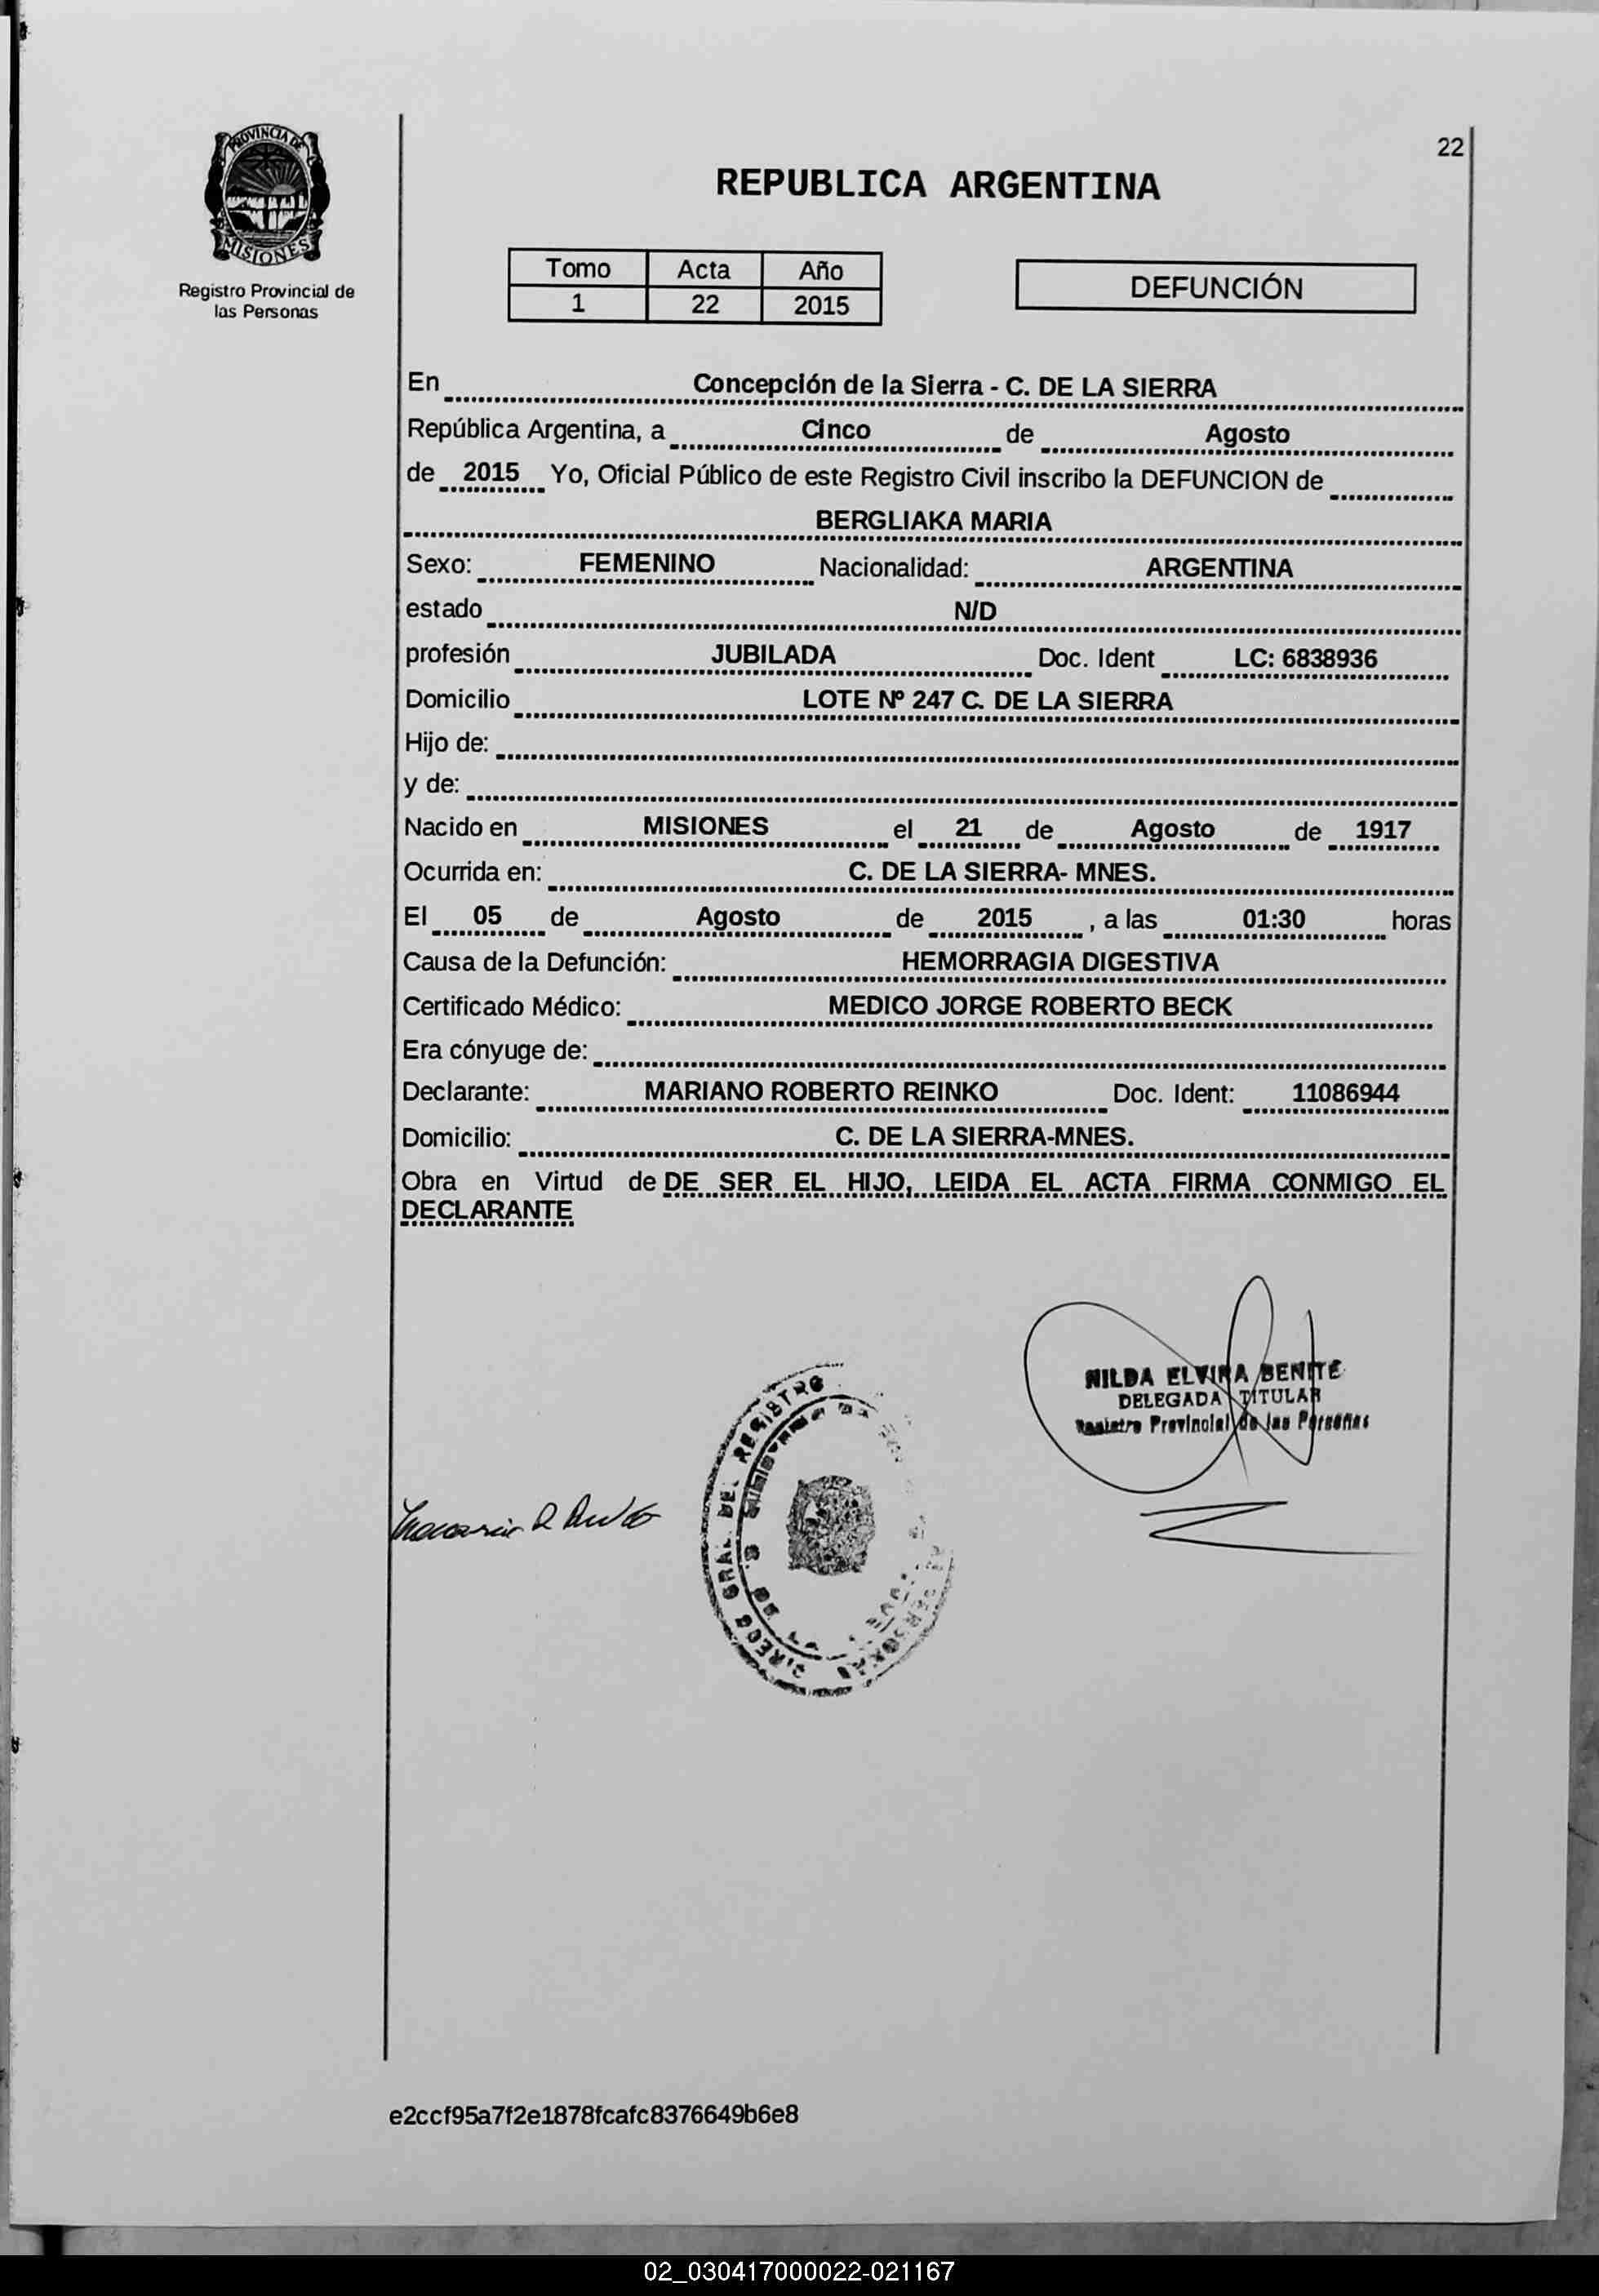 22
PROVINCIA DE
MISIONES
Registro Provincial de
las Personas
REPUBLICA ARGENTINA
Tomo Acta Año
1 22 2015
DEFUNCIÓN
En Concepción de la Sierra - C. DE LA SIERRA
República Argentina, a Cinco de Agosto
de 2015 Yo, Oficial Público de este Registro Civil inscribo la DEFUNCION de
BERGLIAKA MARIA
Sexo: FEMENINO Nacionalidad: ARGENTINA
estado N/D
profesión JUBILADA Doc. Ident LC: 6838936
Domicilio LOTE Nº 247 C. DE LA SIERRA
Hijo de:
y de:
Nacido en MISIONES el 21 de Agosto de 1917
Ocurrida en: C. DE LA SIERRA- MNES.
El 05 de Agosto de 2015 , a las 01:30 horas
Causa de la Defunción: HEMORRAGIA DIGESTIVA
Certificado Médico: MEDICO JORGE ROBERTO BECK
Era cónyuge de:
Declarante: MARIANO ROBERTO REINKO Doc. Ident: 11086944
Domicilio: C. DE LA SIERRA-MNES.
Obra en Virtud de DE SER EL HIJO, LEIDA EL ACTA FIRMA CONMIGO EL
DECLARANTE
NILDA ELVIRA BENITE
DELEGADA TITULAR
Registro Provincial de las Personas
GRAL. DEL REGISTRO
e2ccf95a7f2e1878fcafc8376649b6e8
02_030417000022-021167